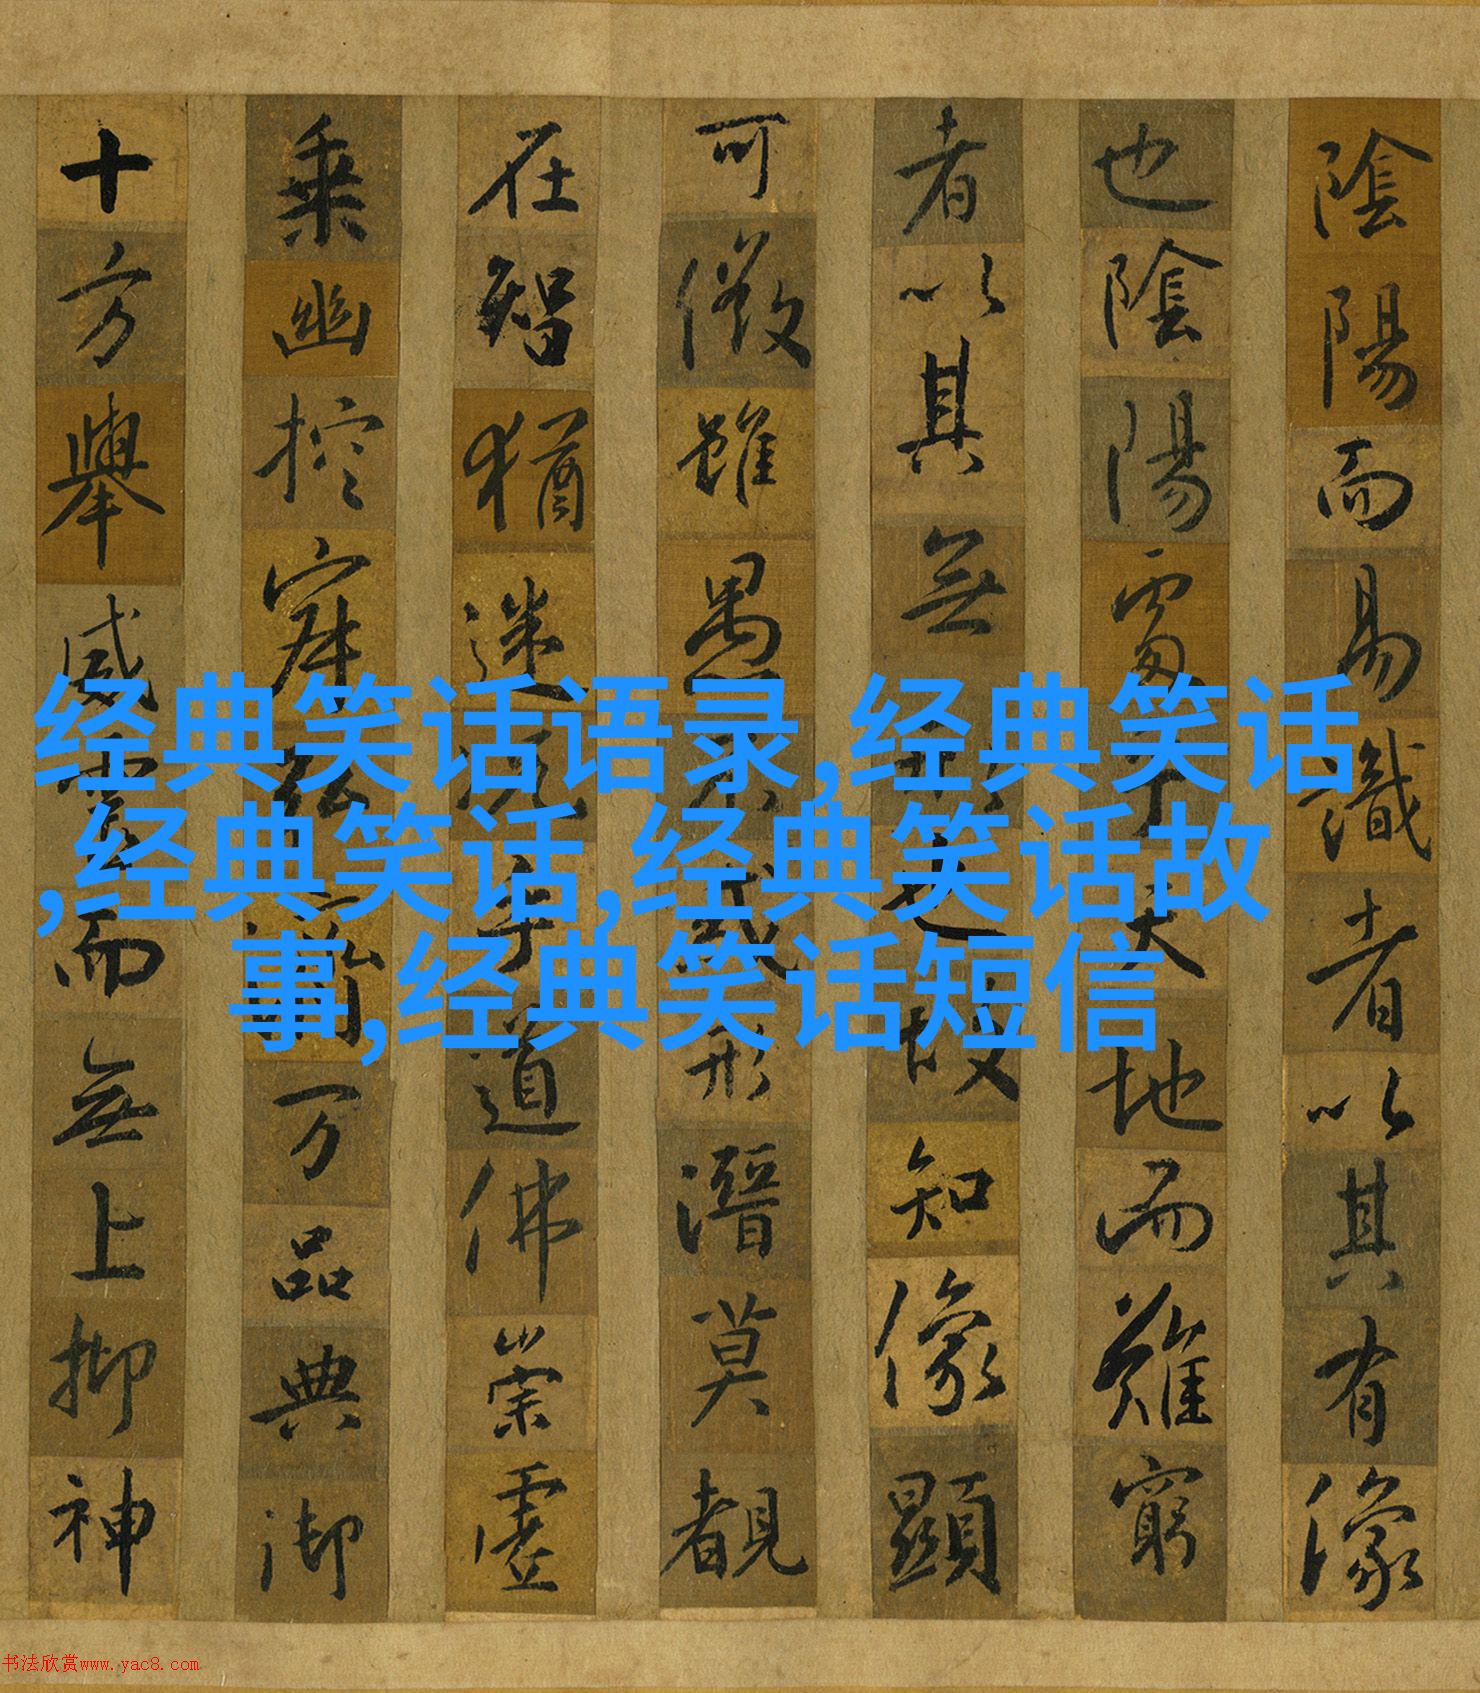 陰陽而易識者以其有像
也陰陽處乎天地而難窮
者以其無形也故知像顯
可徵雖愚不惑形潛莫覩
在智猶迷況乎道佛崇虛
乘幽控寂弘濟万品典御
十方舉威靈而無上抑神
经典笑话语录,经典笑话
,经典笑话,经典笑话故
事,经典笑话短信
书法欣赏www.yac8.com